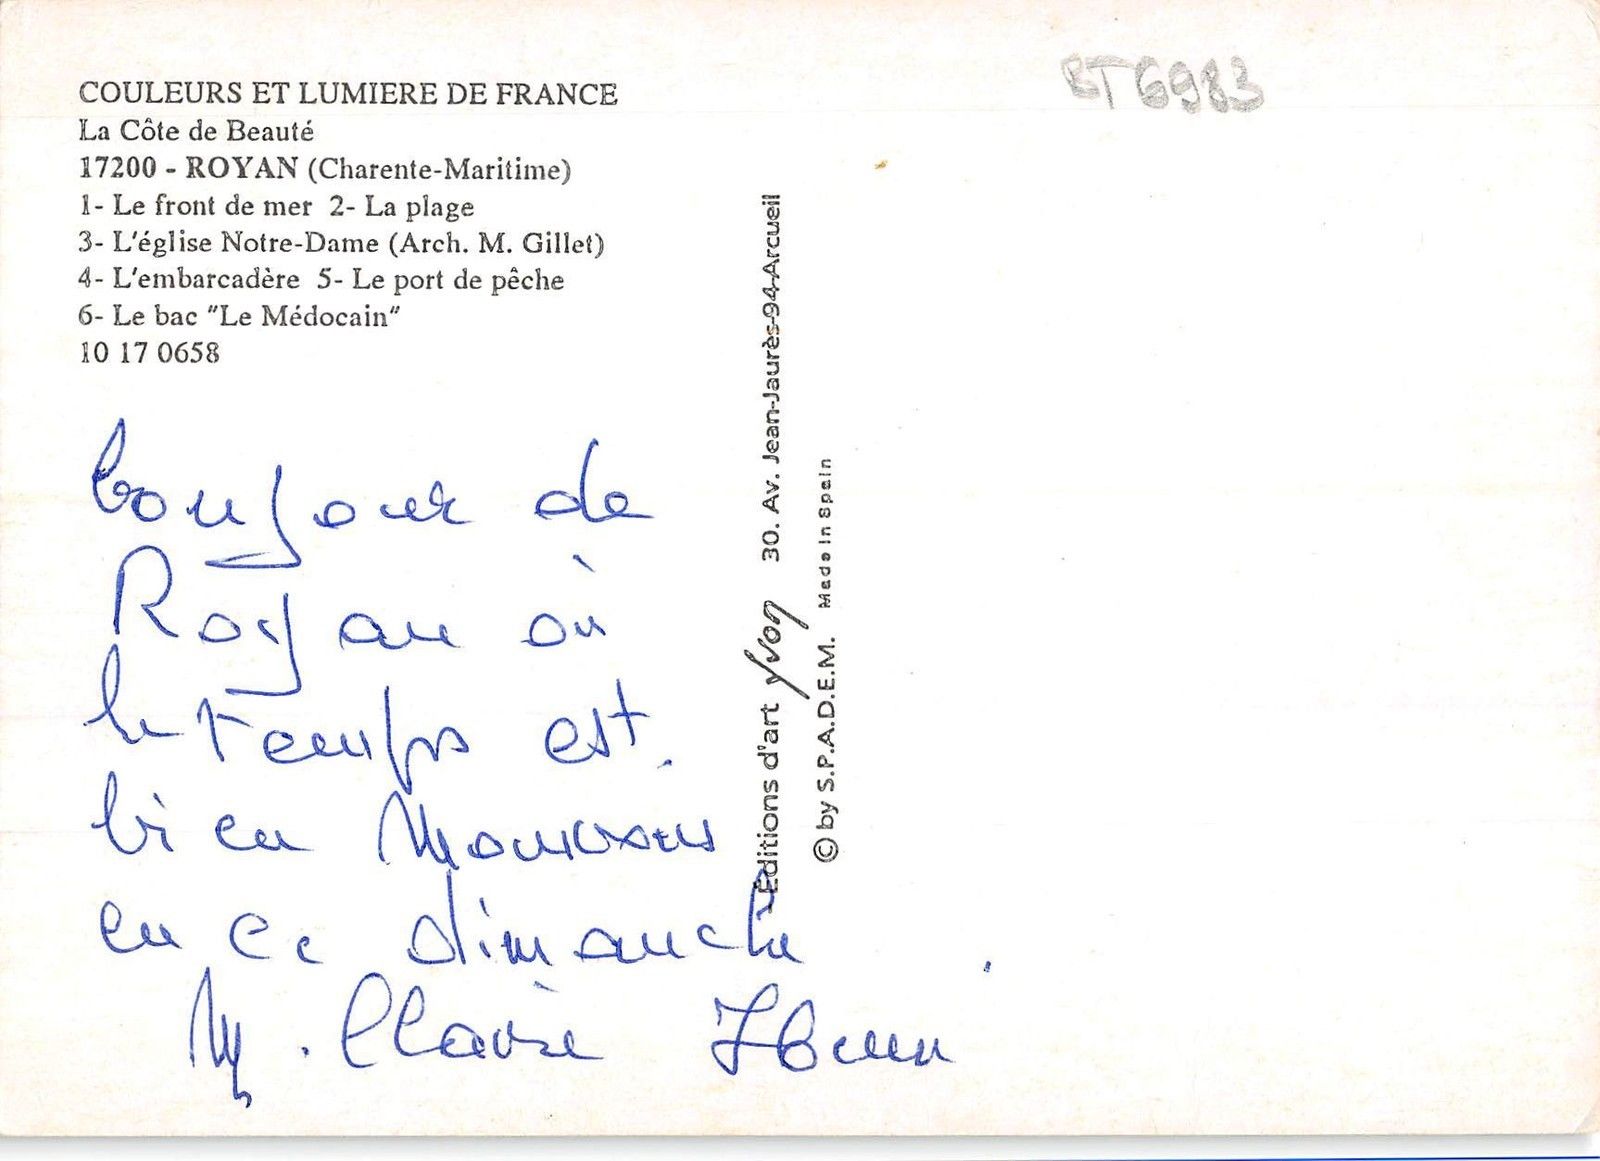 COULEURS ET LUMIERE DE FRANCE
La Côte de Beauté
17200 - ROYAN (Charente-Maritime)
1- Le front de mer 2- La plage
3- L'église Notre-Dame (Arch. M. Gillet)
4- L'embarcadère 5- Le port de pêche
6- Le bac "Le Médocain"
10 17 0658
BT6983
Éditions d'art yvon 30. Av. Jean-Jaurès-94-Arcueil
© by S.P.A.D.E.M. Made in Spain
bonjour de
Royan où
le temps est.
bien
en ce dimanche
M. Claire